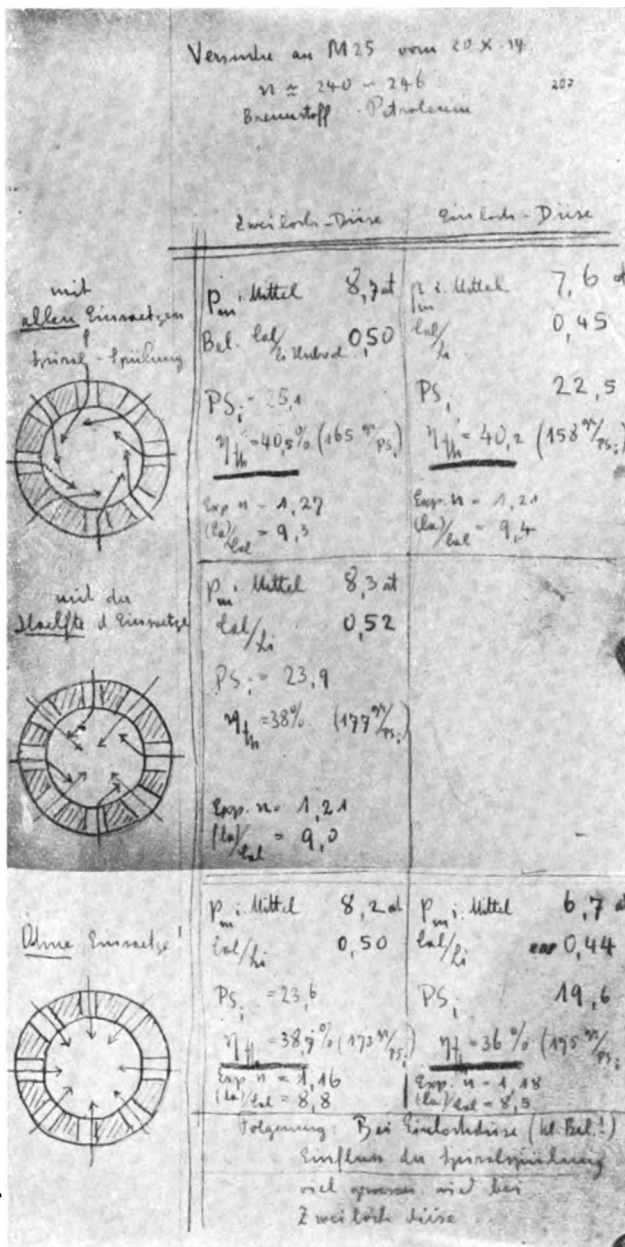 Versuche an M25 vom 20 X. 14
n ≈ 240 – 246
207
Brennstoff Petroleum
Zweiloch-Düse
Einloch-Düse
mit
allen Einsaetzen
Spiral-Spülung
p_m i. Mittel 8,7 at
Bel. Cal/ 0,50
PS_i = 25,1
η_th = 40,5% (165 gr/PS_i)
Exp. n = 1,27
(La)/Cal = 9,3
p_m i. Mittel 7,6 at
Cal/Li 0,45
PS_i 22,5
η_th = 40,2 (158 gr/PS_i)
Exp. n = 1,21
(La)/Cal = 9,4
mit der
Haelfte d Einsaetze
p_m i. Mittel 8,3 at
Cal/Li 0,52
PS_i = 23,9
η_th = 38% (177 gr/PS_i)
Exp. n = 1,21
(La)/Cal = 9,0
Ohne Einsaetze!
p_m i. Mittel 8,2 at
Cal/Li 0,50
PS_i = 23,6
η_th = 38,7% (173 gr/PS_i)
Exp. n = 1,16
(La)/Cal = 8,8
p_m i. Mittel 6,7 at
Cal/Li 0,44
PS_i 19,6
η_th = 36% (175 gr/PS_i
Exp. n = 1,18
(La)/Cal = 8,5
Folgerung: Bei Einlochdüse (kl. Bel.!)
Einfluss der Spiralspülung
viel grosser wie bei
Zweiloch düse.